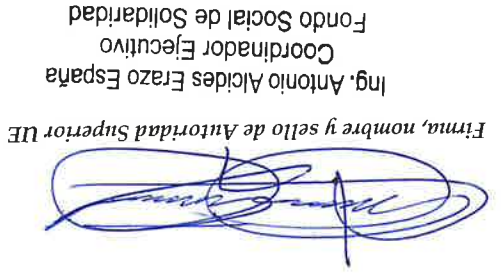 Firma, nombre y sello de Autoridad Superior UE
Ing. Antonio Alcides Erazo España
Coordinador Ejecutivo
Fondo Social de Solidaridad